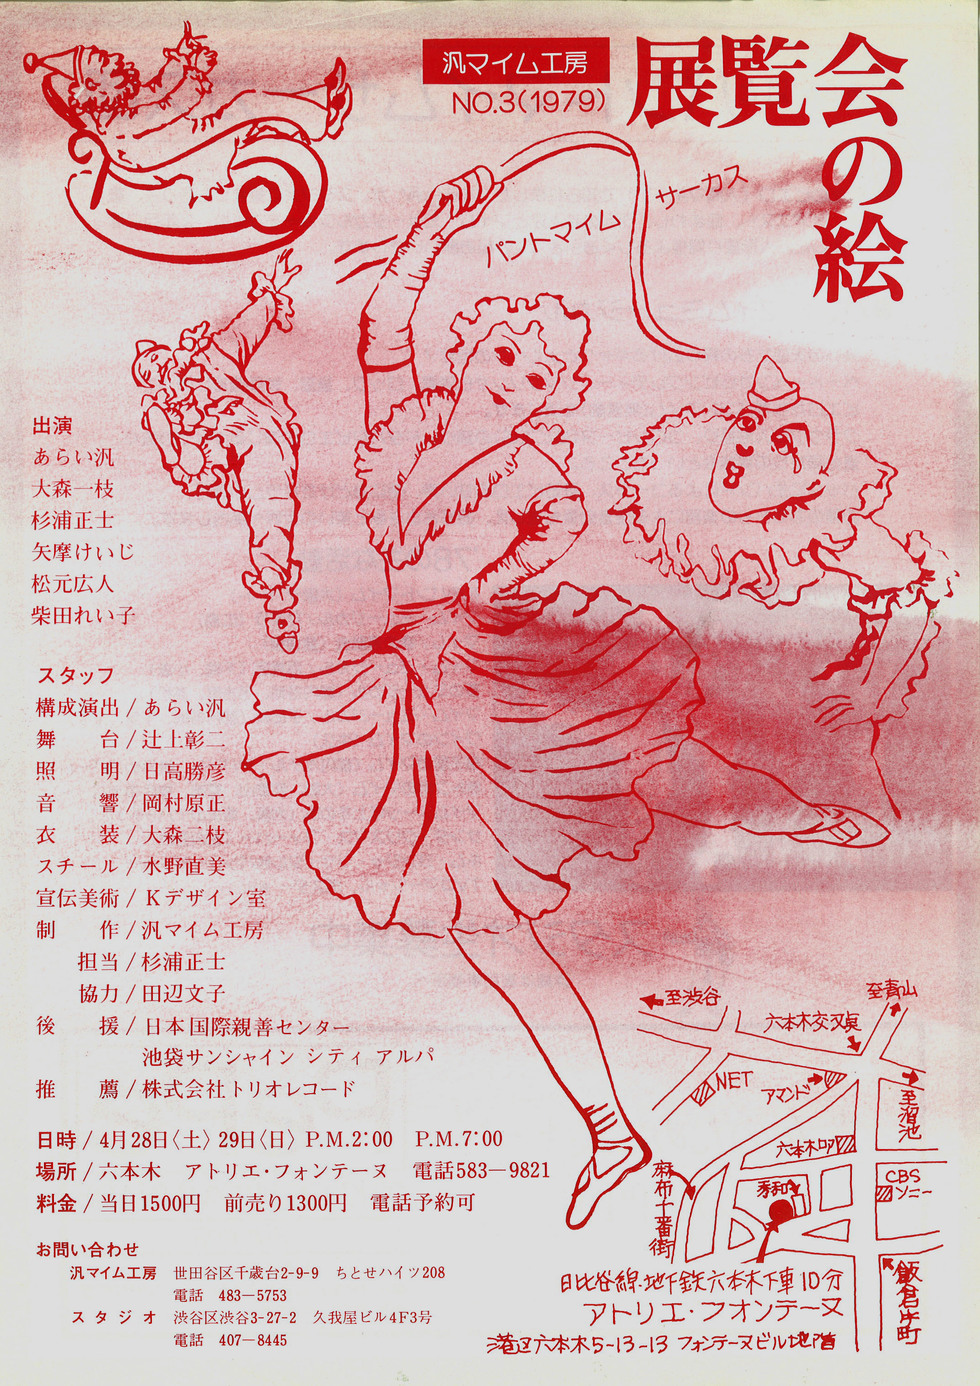 汎マイム工房
NO.3(1979)
展覧会の絵
パントマイム サーカス
出演
あらい汎
大森一枝
杉浦正士
矢摩けいじ
松元広人
柴田れい子
スタッフ
構成演出/あらい汎
舞　台/辻上彰二
照　明/日高勝彦
音　響/岡村原正
衣　装/大森二枝
スチール/水野直美
宣伝美術/Kデザイン室
制　作/汎マイム工房
担当/杉浦正士
協力/田辺文子
後　援/日本国際親善センター
池袋サンシャイン シティ アルパ
推　薦/株式会社トリオレコード
日時/4月28日〈土〉29日〈日〉P.M.2:00　P.M.7:00
場所/六本木　アトリエ・フォンテーヌ　電話583—9821
料金/当日1500円　前売り1300円　電話予約可
お問い合わせ
汎マイム工房　世田谷区千歳台2-9-9　ちとせハイツ208
電話　483—5753
スタジオ　渋谷区渋谷3-27-2　久我屋ビル4F3号
電話　407—8445
至渋谷
至青山
六本木交叉点
NET
アマンド
至溜池
六本木ロア
CBSソニー
麻布十番街
飯倉片町
日比谷線・地下鉄六本木下車10分
アトリエ・フォンテーヌ
港区六本木5-13-13 フォンテーヌビル地階